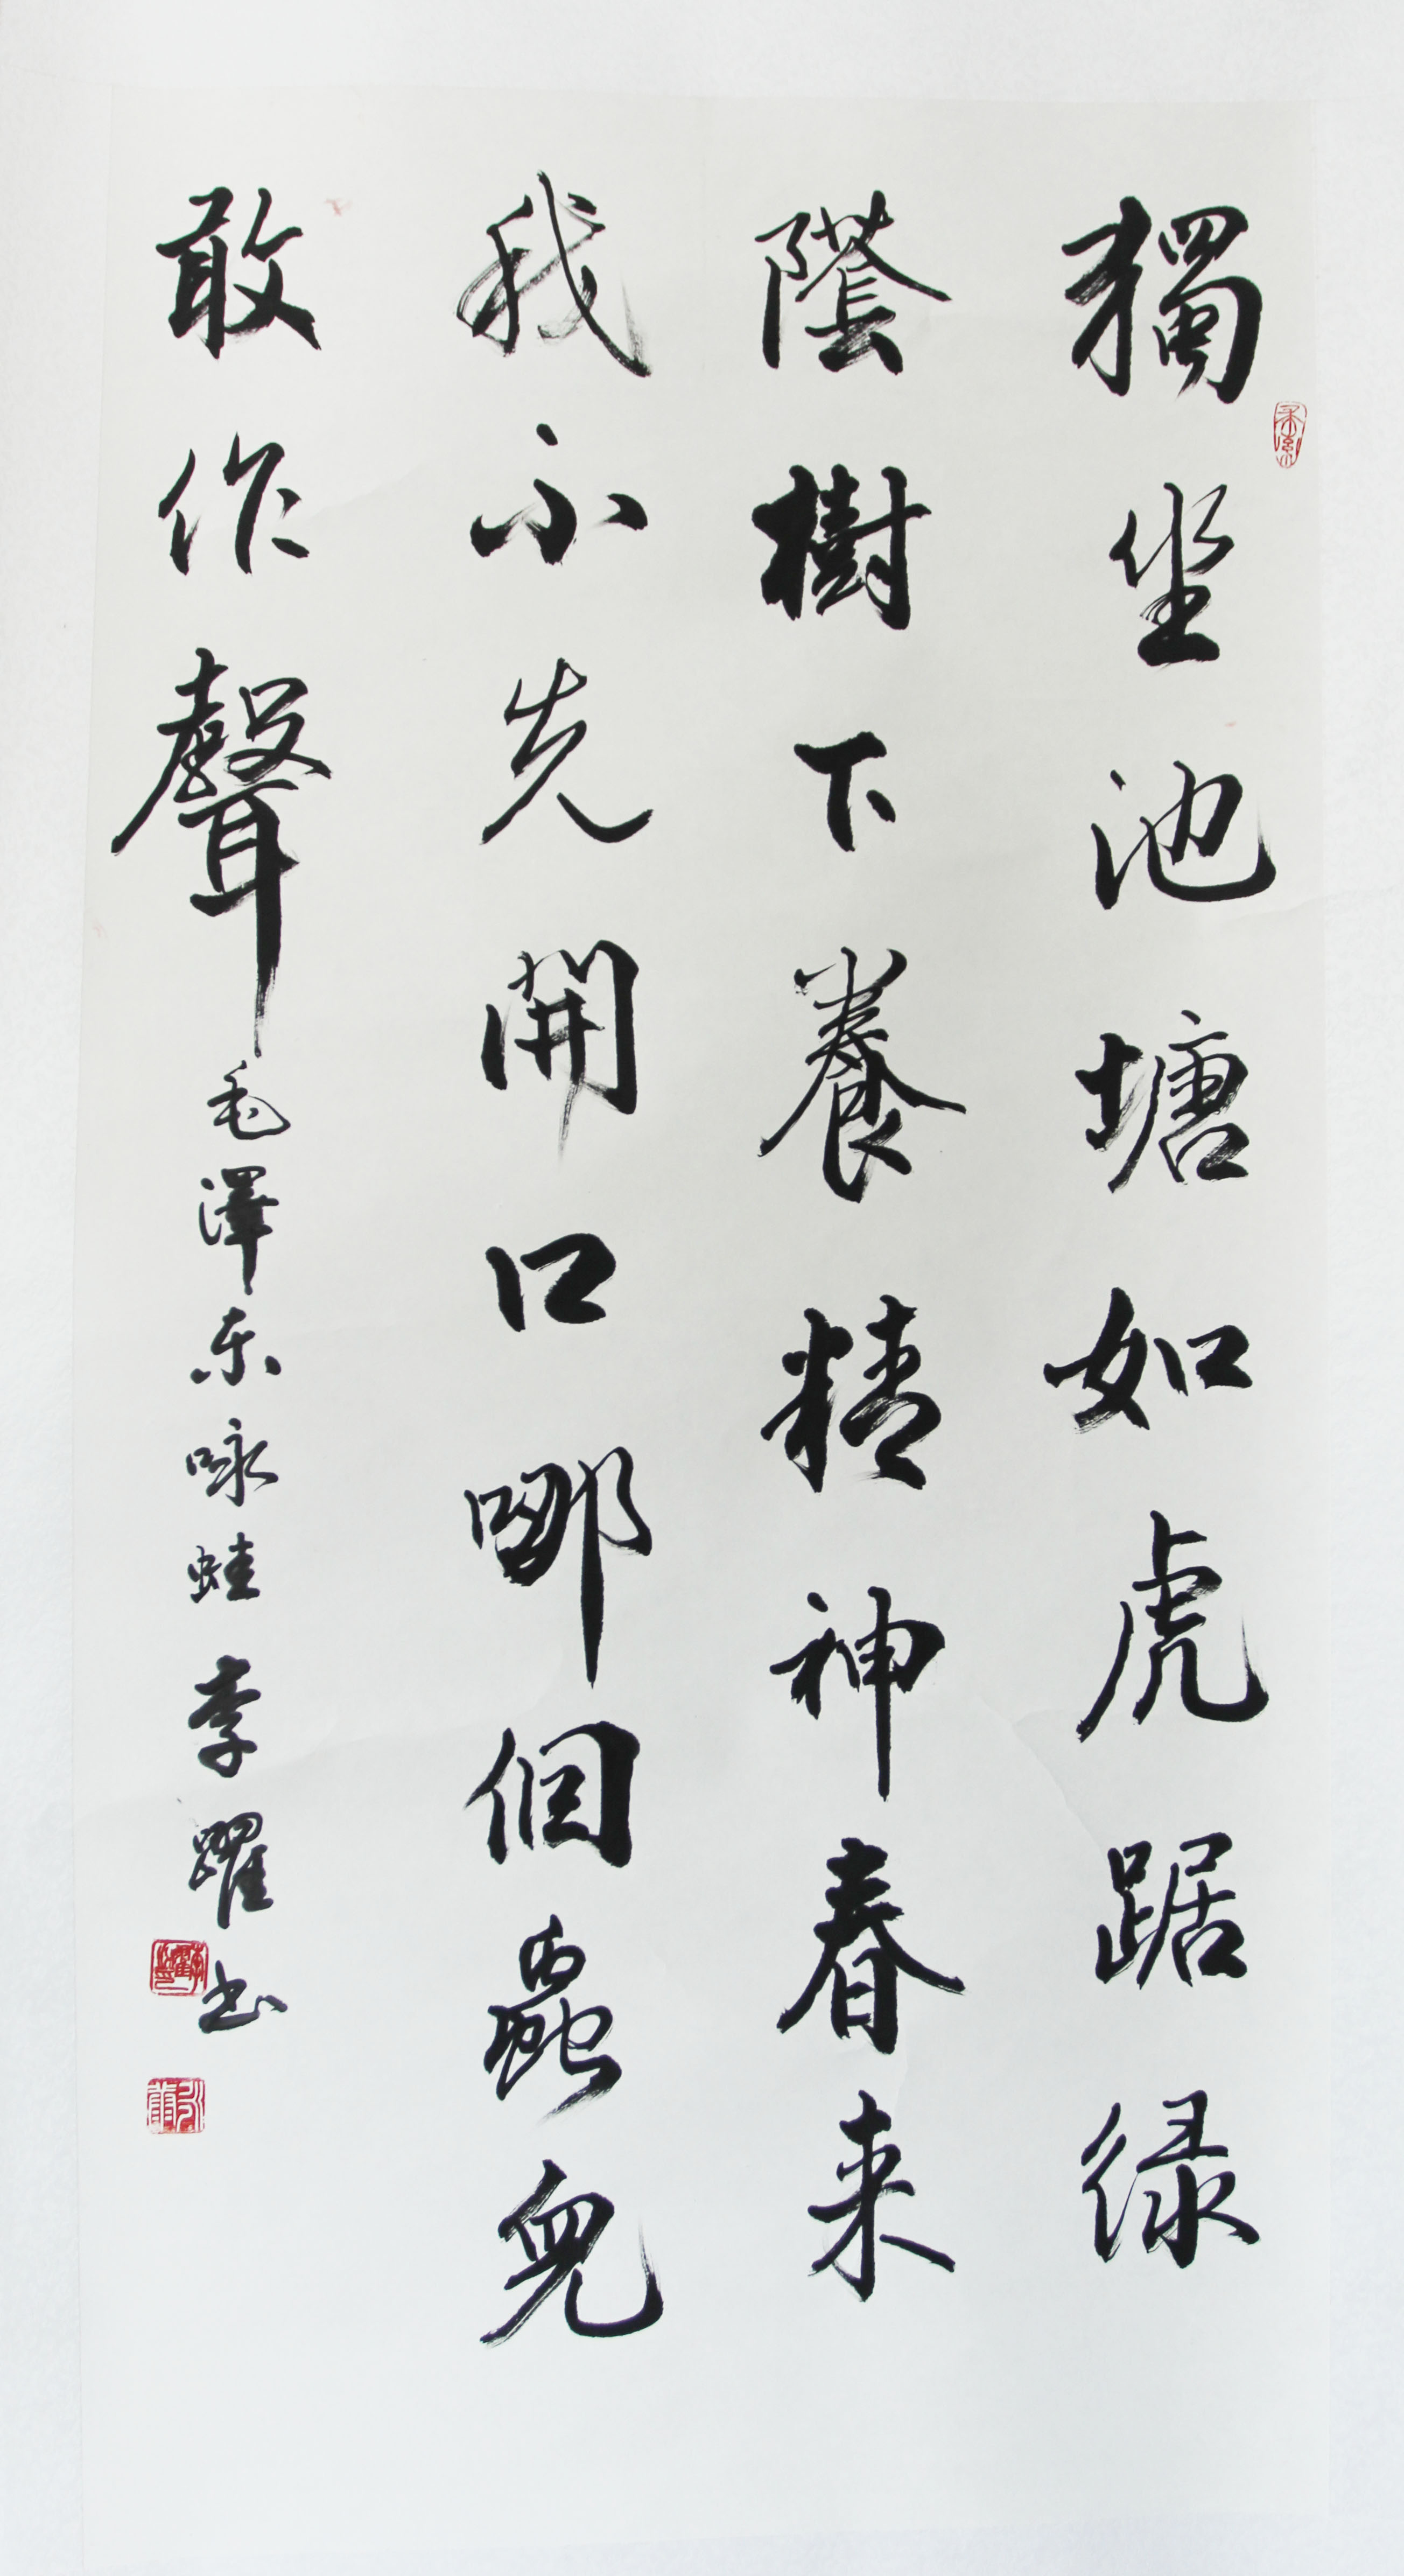 獨坐池塘如虎踞绿
蔭樹下養精神春来
我不先開口哪個蟲兒
敢作聲
毛澤东咏蛙 李躍书